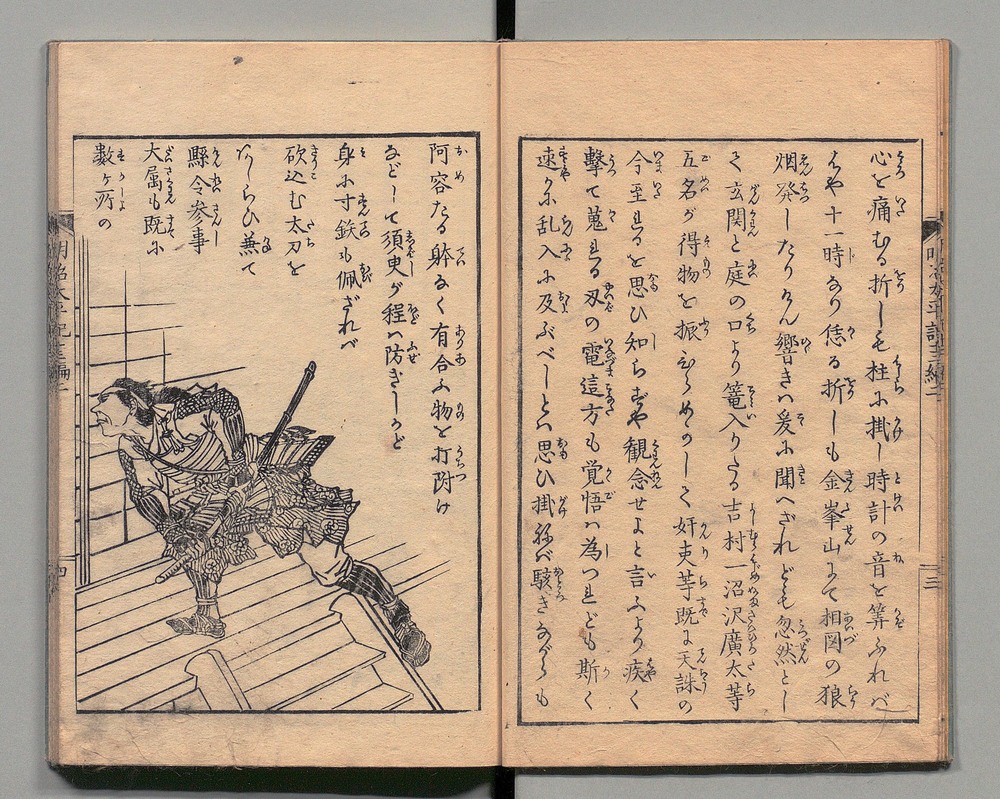 心を痛むる折しも柱に掛し時計の音を筭ふれバ
はや十一時なり恁る折しも金峯山にて相図の狼
烟発したりけん響きハ爰に聞へざれども忽然とし
て玄関と庭の口より篭入りたる吉村一沼沢廣太等
五名が得物を振ひらめかして奸吏等既に天誅の
今至るを思ひ知らずや観念せよと言ふより疾く
撃て蒐る刄の電這方も覚悟ハ為つれども斯く
速かに乱入に及ぶべしとハ思ひ掛ねバ駭きながらも
阿容たる躰なく有合ふ物を打附け
などして須臾が程ハ防ぎしかど
身に寸鉄も佩ざれバ
砍込む太刀を
あしらひ兼て
縣令参事
大属も既に
數ヶ所の
明治太平記十三編二
四
三